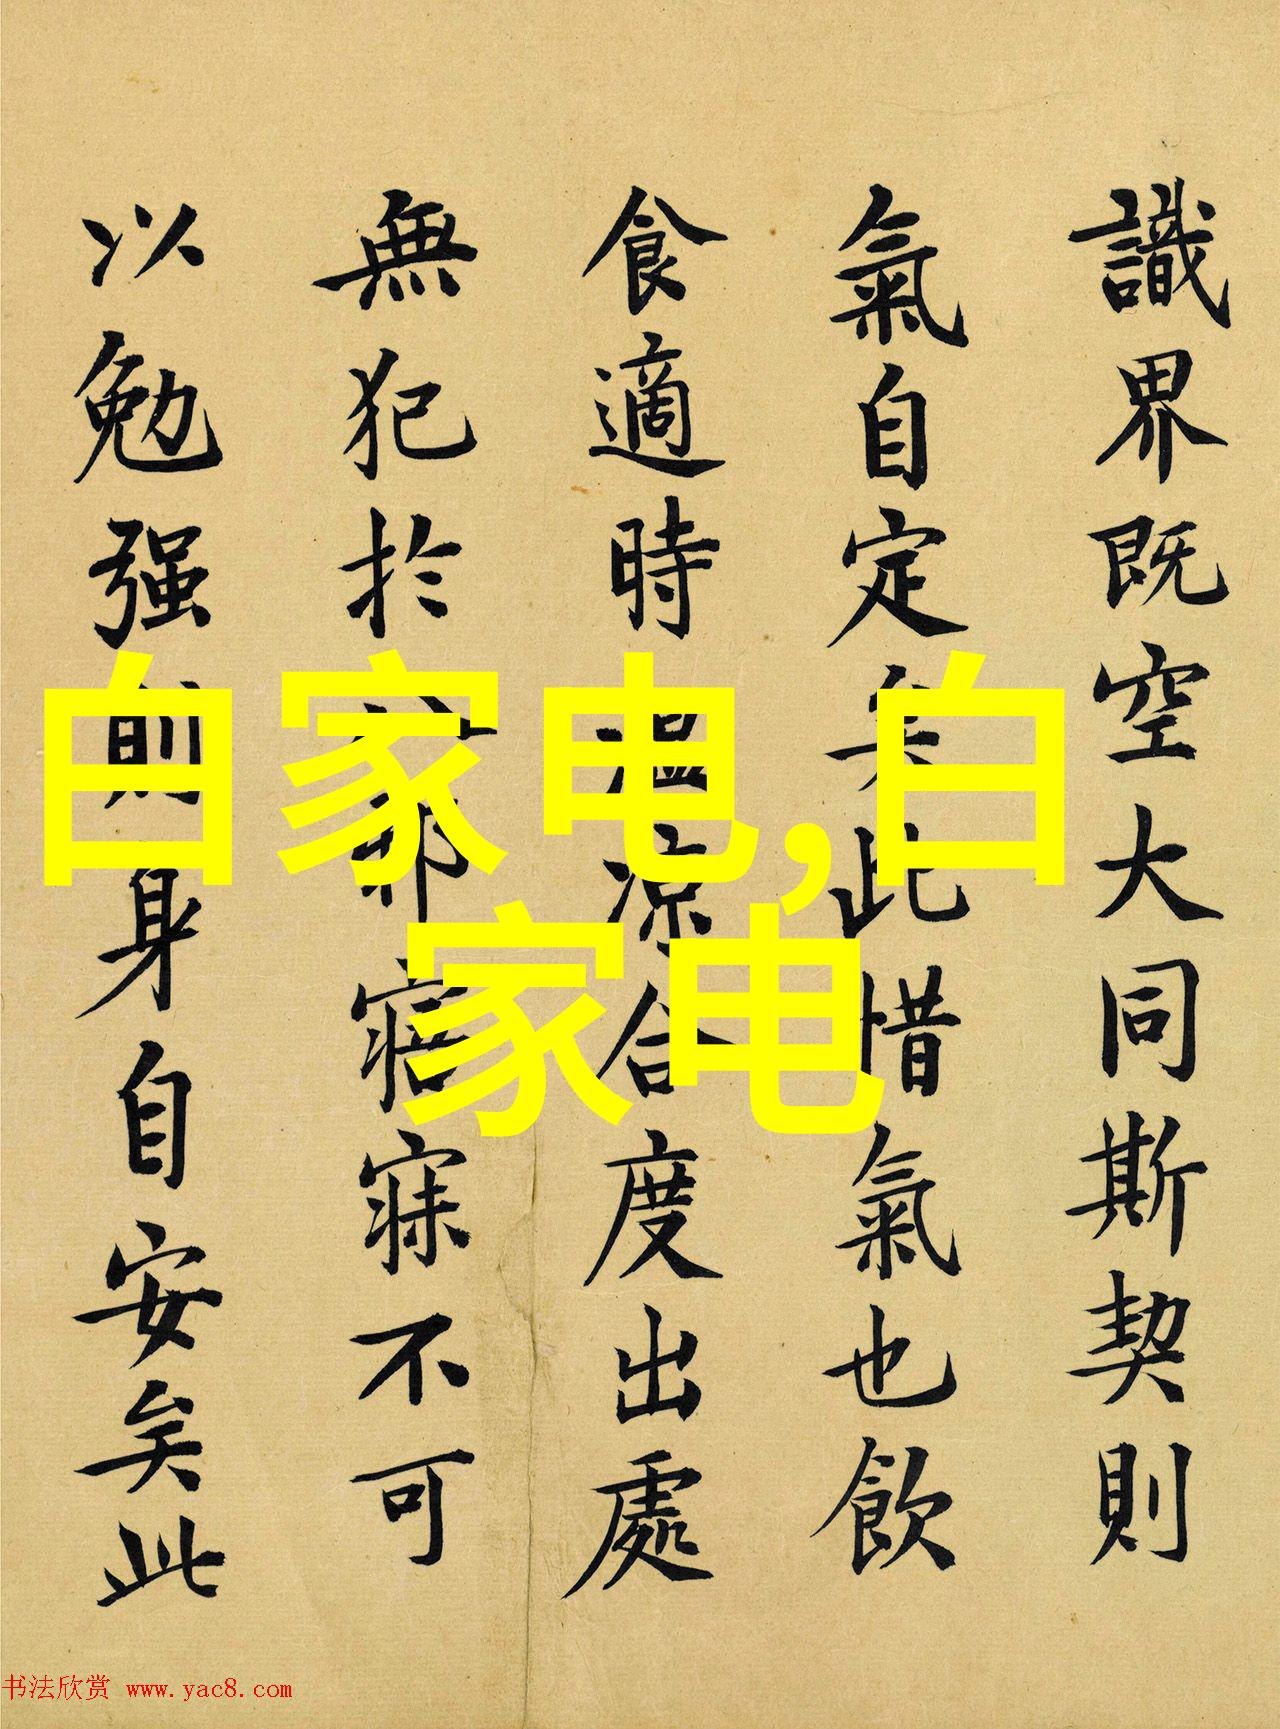 識界既空大同斯契則
氣自定矣此惜氣也飲
食適時温凉合度出處
無犯於八邪寤寐不可
以勉强則身自安矣此
白家电,白
家电
书法欣赏 www.yac8.com